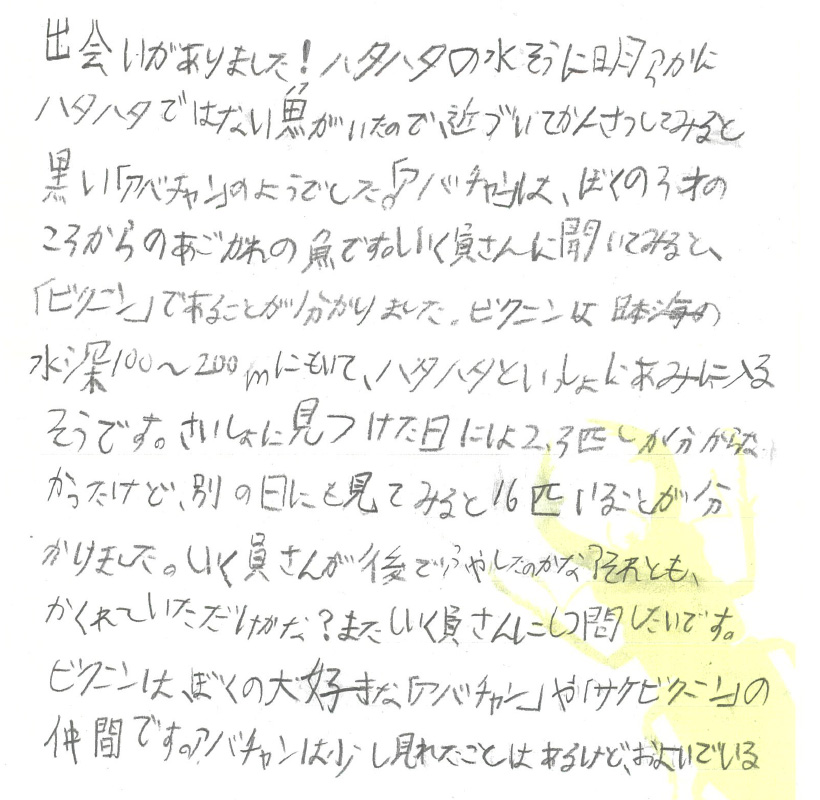 出会いがありました！ハタハタの水そうに明らかに
ハタハタではない魚がいたので、近づいてかんさつしてみると
黒い「アバチャン」のようでした。「アバチャン」は、ぼくの3才の
ころからのあこがれの魚です。しいく員さんに聞いてみると、
「ビクニン」であることが分かりました。ビクニンは日本海の
水深100〜200mにもいて、ハタハタといっしょにあみに入る
そうです。さいしょに見つけた日には2,3匹しか分からな
かったけど、別の日にも見てみると16匹いることが分
かりました。しいく員さんが後でふやしたのかな?それとも、
かくれていただけかな?またしいく員さんにしつ問したいです。
ビクニンは、ぼくの大好きな「アバチャン」や「サケビクニン」の
仲間です。アバチャンは少し見れたことはあるけど、およいでいる